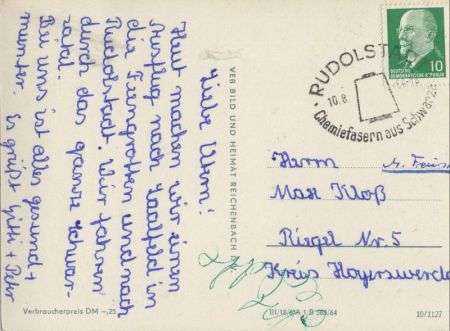 Liebe Eltern!
Heut machen wir einen
Ausflug nach Saalfeld in
die Feengrotten und nach
Rudolstadt. Wir fahren
durch das ganze Schwar-
zatal.
Bei uns ist alles gesund +
munter. Es grüßt Gitti + Peter
VEB BILD UND HEIMAT REICHENBACH
RUDOLST
10.8.
Chemiefasern aus Schwarza
10
DEUTSCHE
DEMOKRATISCHE REPUBLIK
Herrn
Max Kloß
Riegel Nr. 5
Kreis Hoyerswerda
Verbraucherpreis DM -,25
III/18/6 A 1 B 565/64
10/1127